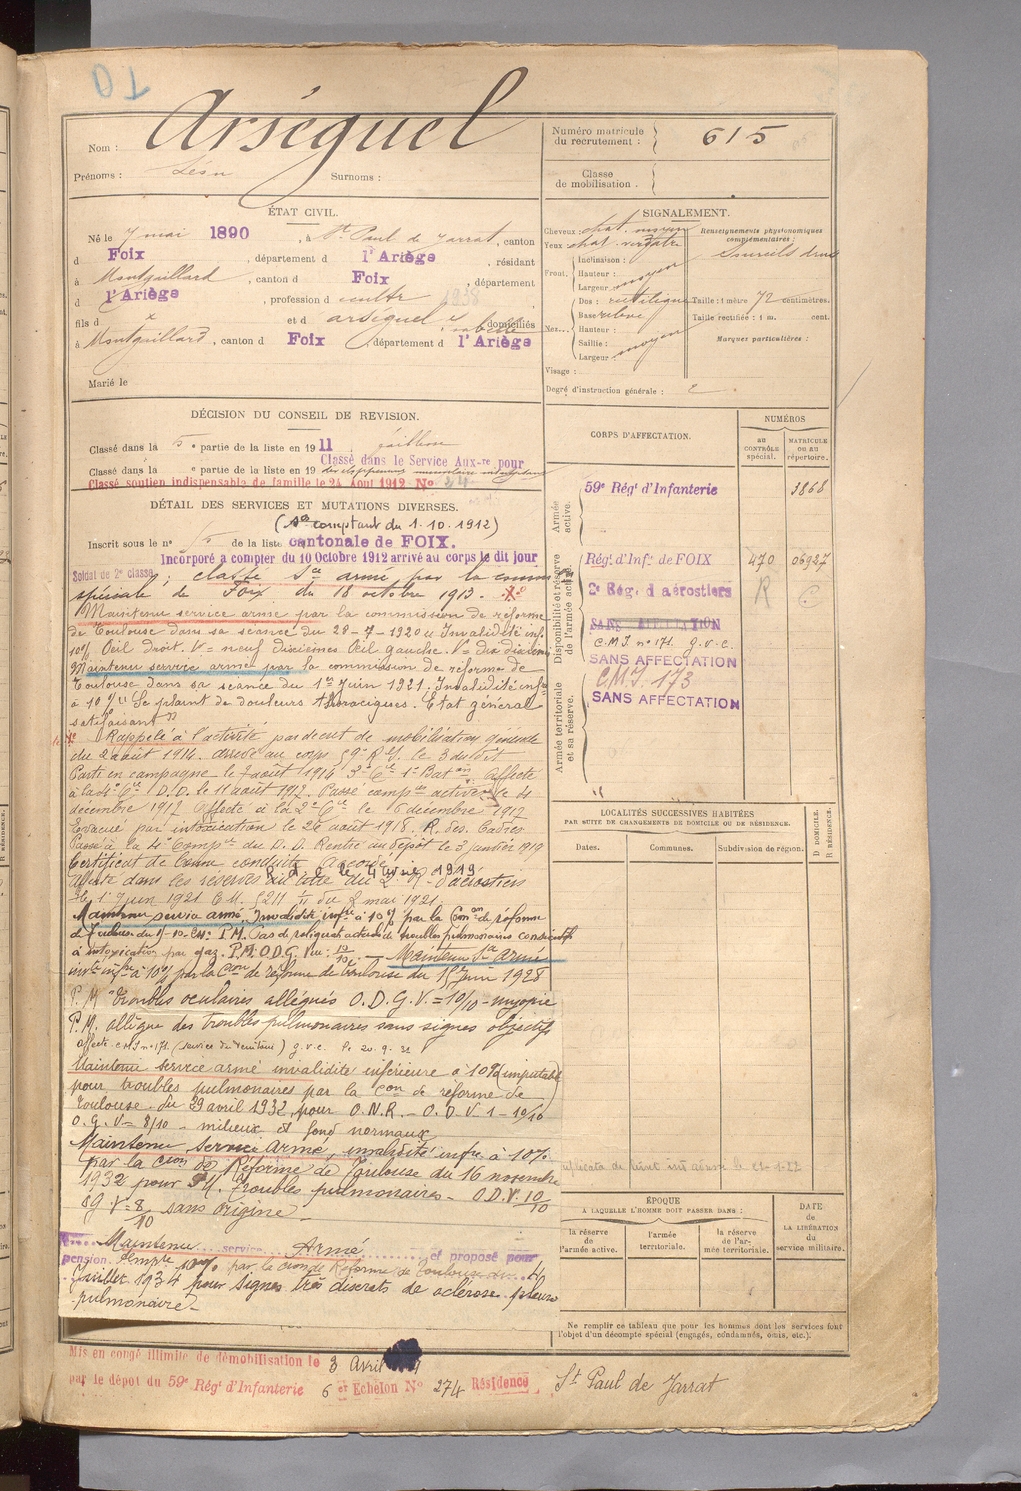 Arséguel
Nom :
Prénoms : Léon Surnoms :
Numéro matricule du recrutement : 615
Classe de mobilisation .
ÉTAT CIVIL.
Né le 7 mai 1890, à St Paul de Jarrat, canton
d Foix, département d l'Ariège, résidant
à Montgaillard, canton d Foix, département
d l'Ariège, profession de cultr 1938
fils d x et d arséguel domiciliés
à Montgaillard, canton d Foix, département d l'Ariège
Marié le
SIGNALEMENT.
Cheveux chat. moyen
Yeux chat. verdâtre
Renseignements physionomiques complémentaires :
Sourcils drus
Front. Inclinaison :
Hauteur : moyen
Largeur
Nez. Dos : rectiligne
Base relevé
Hauteur :
Saillie : moyen
Largeur
Taille : 1 mètre 72 centimètres.
Taille rectifiée : 1 m. cent.
Marques particulières :
Visage :
Degré d'instruction générale : 2
DÉCISION DU CONSEIL DE REVISION.
Classé dans la 5e partie de la liste en 1911 faiblesse
Classé dans le Service Aux-re pour
Classé dans la e partie de la liste en 19 développement musculaire
Classé soutien indispensable de famille le 24 Août 1912 No 24
DÉTAIL DES SERVICES ET MUTATIONS DIVERSES.
(se comptant du 1.10.1912)
Inscrit sous le no de la liste cantonale de FOIX.
Incorporé à compter du 10 Octobre 1912 arrivé au corps le dit jour
Soldat de 2e classe ; classé Sce armé par la comm
spéciale de Foix du 18 octobre 1913.
Maintenu service armé par la commission de réforme
de Toulouse dans sa séance du 28-7-1920 Invalidité inf.
10% Oeil droit. V = neuf dixièmes Oeil gauche. V = dix dixièmes
Maintenu service armé par la commission de réforme de
Toulouse dans sa séance du 1er Juin 1921. Invalidité infre
à 10% Se plaint de douleurs thoraciques. État général
satisfaisant
Rappelé à l'activité par décret de mobilisation générale
du 2 août 1914. arrivé au corps 59e R.I. le 3 du dit
Parti en campagne le 7 août 1914 3e Cie 1er Baton Affecté
à la 4e Cie D.D. le 11 août 1917. Passé compie active le 4
décembre 1917 Affecté à la 2e Cie le 6 décembre 1917
Evacué par intoxication le 26 août 1918. R. des Cadres
Passé à la 4e Compie du D.D. Rentré au dépôt le 3 janvier 1919
Certificat de bonne conduite Accordé
Affecté dans les réserves du 2e R. d'aérostiers
le 1er Juin 1921 C.M. du 2 mai 1921.
Maintenu service armé. Invalidité infre à 10% par la Comon de réforme
de Toulouse du P.M. Pas de reliquat actuel de troubles pulmonaires consécutifs
à intoxication par gaz. P.M. O.D.G. Vu : 10/10 Maintenu Sce Armé
invté infre à 10% par la Con de réforme de Toulouse du 15 Juin 1928
P.M. Troubles oculaires allégués O.D.G.V. = 10/10 - myopie
P.M. allègue des troubles pulmonaires sans signes objectifs
affecté C.M.I no 171 (service du territoire) g.v.c. le 20.9.32
Maintenu service armé invalidité inférieure à 10% (imputable)
pour troubles pulmonaires par la Con de réforme de
Toulouse du 29 avril 1932, pour O.N.R. - O.D.V. 1 - 10/10
O.G.V = 8/10 - milieux et fond normaux
Maintenu Service Armé, invalidité infre à 10%
par la Cion de Réforme de Toulouse du 16 novembre
1932 pour P.M. Troubles pulmonaires - O.D.V. 10/10
OG V = 8/10 sans origine
Maintenu service Armé et proposé pour
pension tempre 10% par la Cion de Réforme de Toulouse du 4
Juillet 1934 pour signes très discrets de sclérose pleuro
pulmonaire -
Mis en congé illimité de démobilisation le 3 Avril
par le dépôt du 59e Régt d'Infanterie 6 er Echelon No 274 Résidence St Paul de Jarrat
CORPS D'AFFECTATION.
NUMÉROS
AU CONTRÔLE spécial.
MATRICULE OU AU répertoire.
Armée active.
59e Régt d'Infanterie 3868
Disponibilité et réserve de l'armée active.
Régt d'Infie de FOIX 470 06927
2e Rég. d aérostiers R C
SANS AFFECTATION
C.M.I no 171 g.v.c.
SANS AFFECTATION
C.M.I. 173
SANS AFFECTATION
Armée territoriale et sa réserve.
LOCALITÉS SUCCESSIVES HABITÉES
PAR SUITE DE CHANGEMENTS DE DOMICILE OU DE RÉSIDENCE.
Dates. Communes. Subdivision de région. D DOMICILE. R RÉSIDENCE.
ÉPOQUE
A LAQUELLE L'HOMME DOIT PASSER DANS :
la réserve de l'armée active.
l'armée territoriale.
la réserve de l'armée territoriale.
DATE de LA LIBÉRATION du service militaire.
Ne remplir ce tableau que pour les hommes dont les services font
l'objet d'un décompte spécial (engagés, condamnés, omis, etc.).